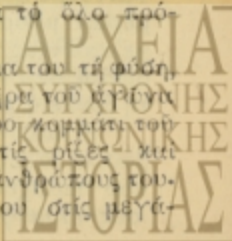 τό ὅλο πρό-
α του τή φύση,
ρα τοῦ ἀγῶνα
ρο κομμάτι τοῦ
τίς ρίζες καί
ανθρώπους του.
ου στίς μεγά-
ΑΡΧΕΙΑ
ΣΥΓΧΡΟΝΗΣ
ΚΟΙΝΩΝΙΚΗΣ
ΙΣΤΟΡΙΑΣ